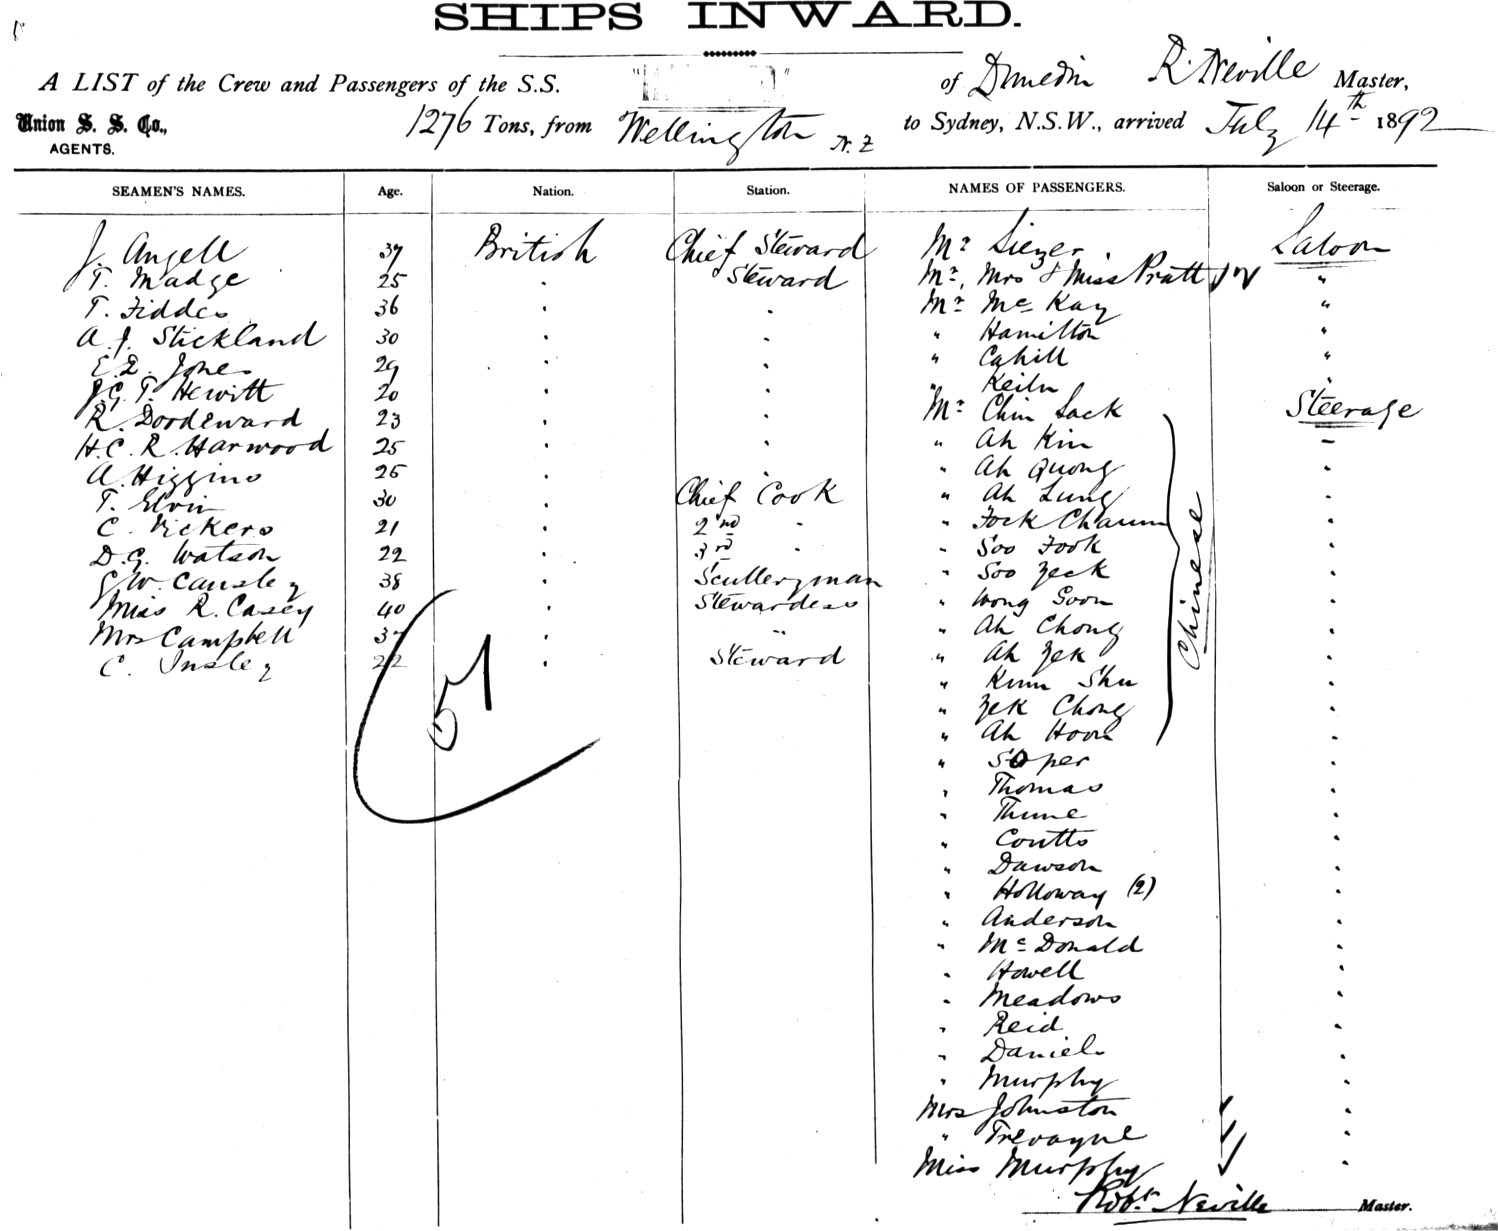 SHIPS INWARD.
A LIST of the Crew and Passengers of the S.S. " " of Dunedin R. Neville Master,
Union S. S. Co., AGENTS. 1276 Tons, from Wellington N.Z to Sydney, N.S.W., arrived July 14th 1892
SEAMEN'S NAMES. Age. Nation. Station. NAMES OF PASSENGERS. Saloon or Steerage.
J. Angell 37 British Chief Steward Mr Saloon
T. Madge 25 " Steward Mr, Mrs & Miss Pratt "
T. Fiddes 36 " " Mr McKay "
A. J. Stickland 30 " " " Hamilton "
E. E. Jones 29 " " " Cahill "
J.G. T. Hewitt 20 " " " "
R. Doodeward 23 " " Mr Chin Sack Steerage
H. C. R. Harwood 25 " " " Ah Kin "
A. Higgins 25 " " " Ah Quong "
T. Elvin 30 " Chief Cook " Ah Lung "
C. Vickers 21 " 2nd " " Fock Chaum "
D. G. Watson 22 " 3rd " " Soo Fook "
G W. Causley 38 " Sculleryman " Soo Yeck "
Miss R. Casey 40 " Stewardess " Wong Goon "
Mrs Campbell 37 " " " Ah Chong "
C. Insley 22 " Steward " Ah Yek "
" Kum Shu "
" Yek Chong "
" Ah Hoon "
Chinese
51
" Soper "
" Thomas "
" Thune "
" Coutts "
" Dawson "
" Holloway (2) "
" Anderson "
" McDonald "
" Howell "
" Meadows "
" Reid "
" Daniels "
" Murphy "
Mrs Johnston "
" Trevayne "
Miss Murphy "
Robt. Neville Master.